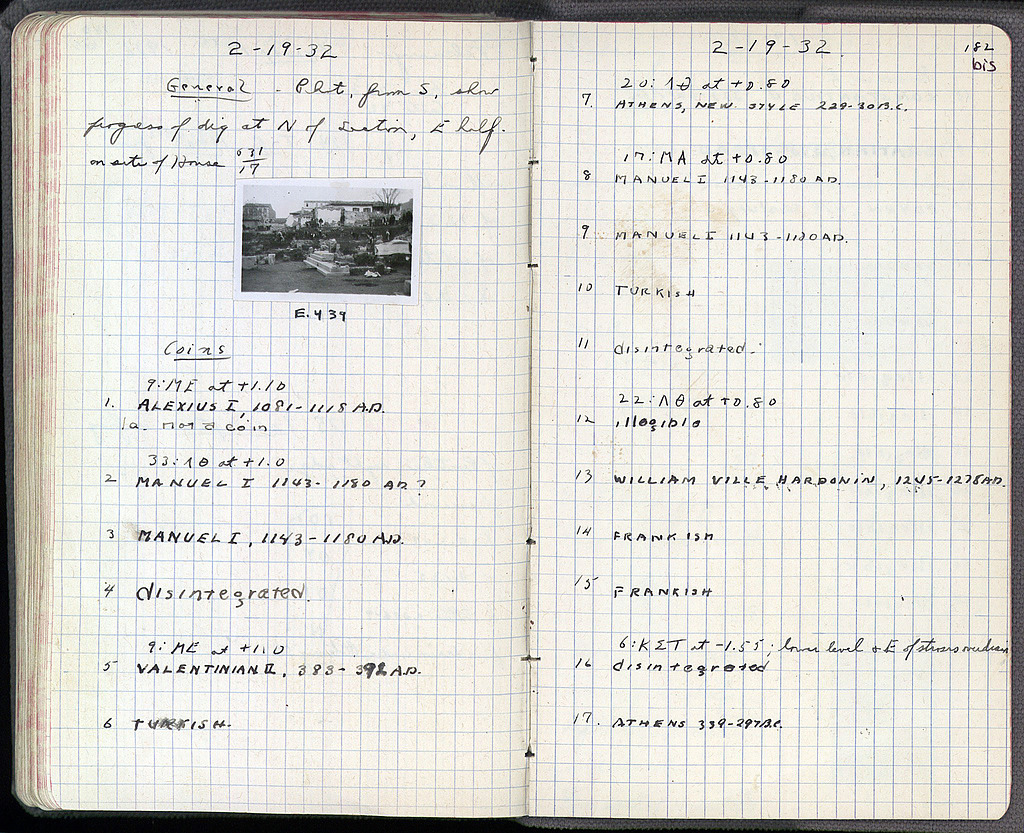 2-19-32
General - Phot. from S, show
progress of dig at N of Section, E half.
on site of House 631/17
E.439
Coins
9:ME at +1.10
1. ALEXIUS I, 1081-1118 A.D.
1a. not a coin
33:ΛΘ at +1.0
2 MANUEL I 1143-1180 AD?
3 MANUEL I, 1143-1180 A.D.
4 disintegrated.
9:ME at +1.0
5 VALENTINIAN II, 383-392 A.D.
6 TURKISH.
2-19-32
182
bis
20:ΛΘ at +0.80
7. ATHENS, NEW STYLE 229-30 B.C.
17:MA at +0.80
8 MANUEL I 1143-1180 AD.
9 MANUEL I 1143-1180 AD.
10 TURKISH
11 disintegrated.
22:ΛΘ at +0.80
12 illegible
13 WILLIAM VILLE HARDONIN, 1245-1278 AD.
14 FRANKISH
15 FRANKISH
6:KΣT at -1.55; lower level & E of
16 disintegrated
17. ATHENS 339-297 B.C.